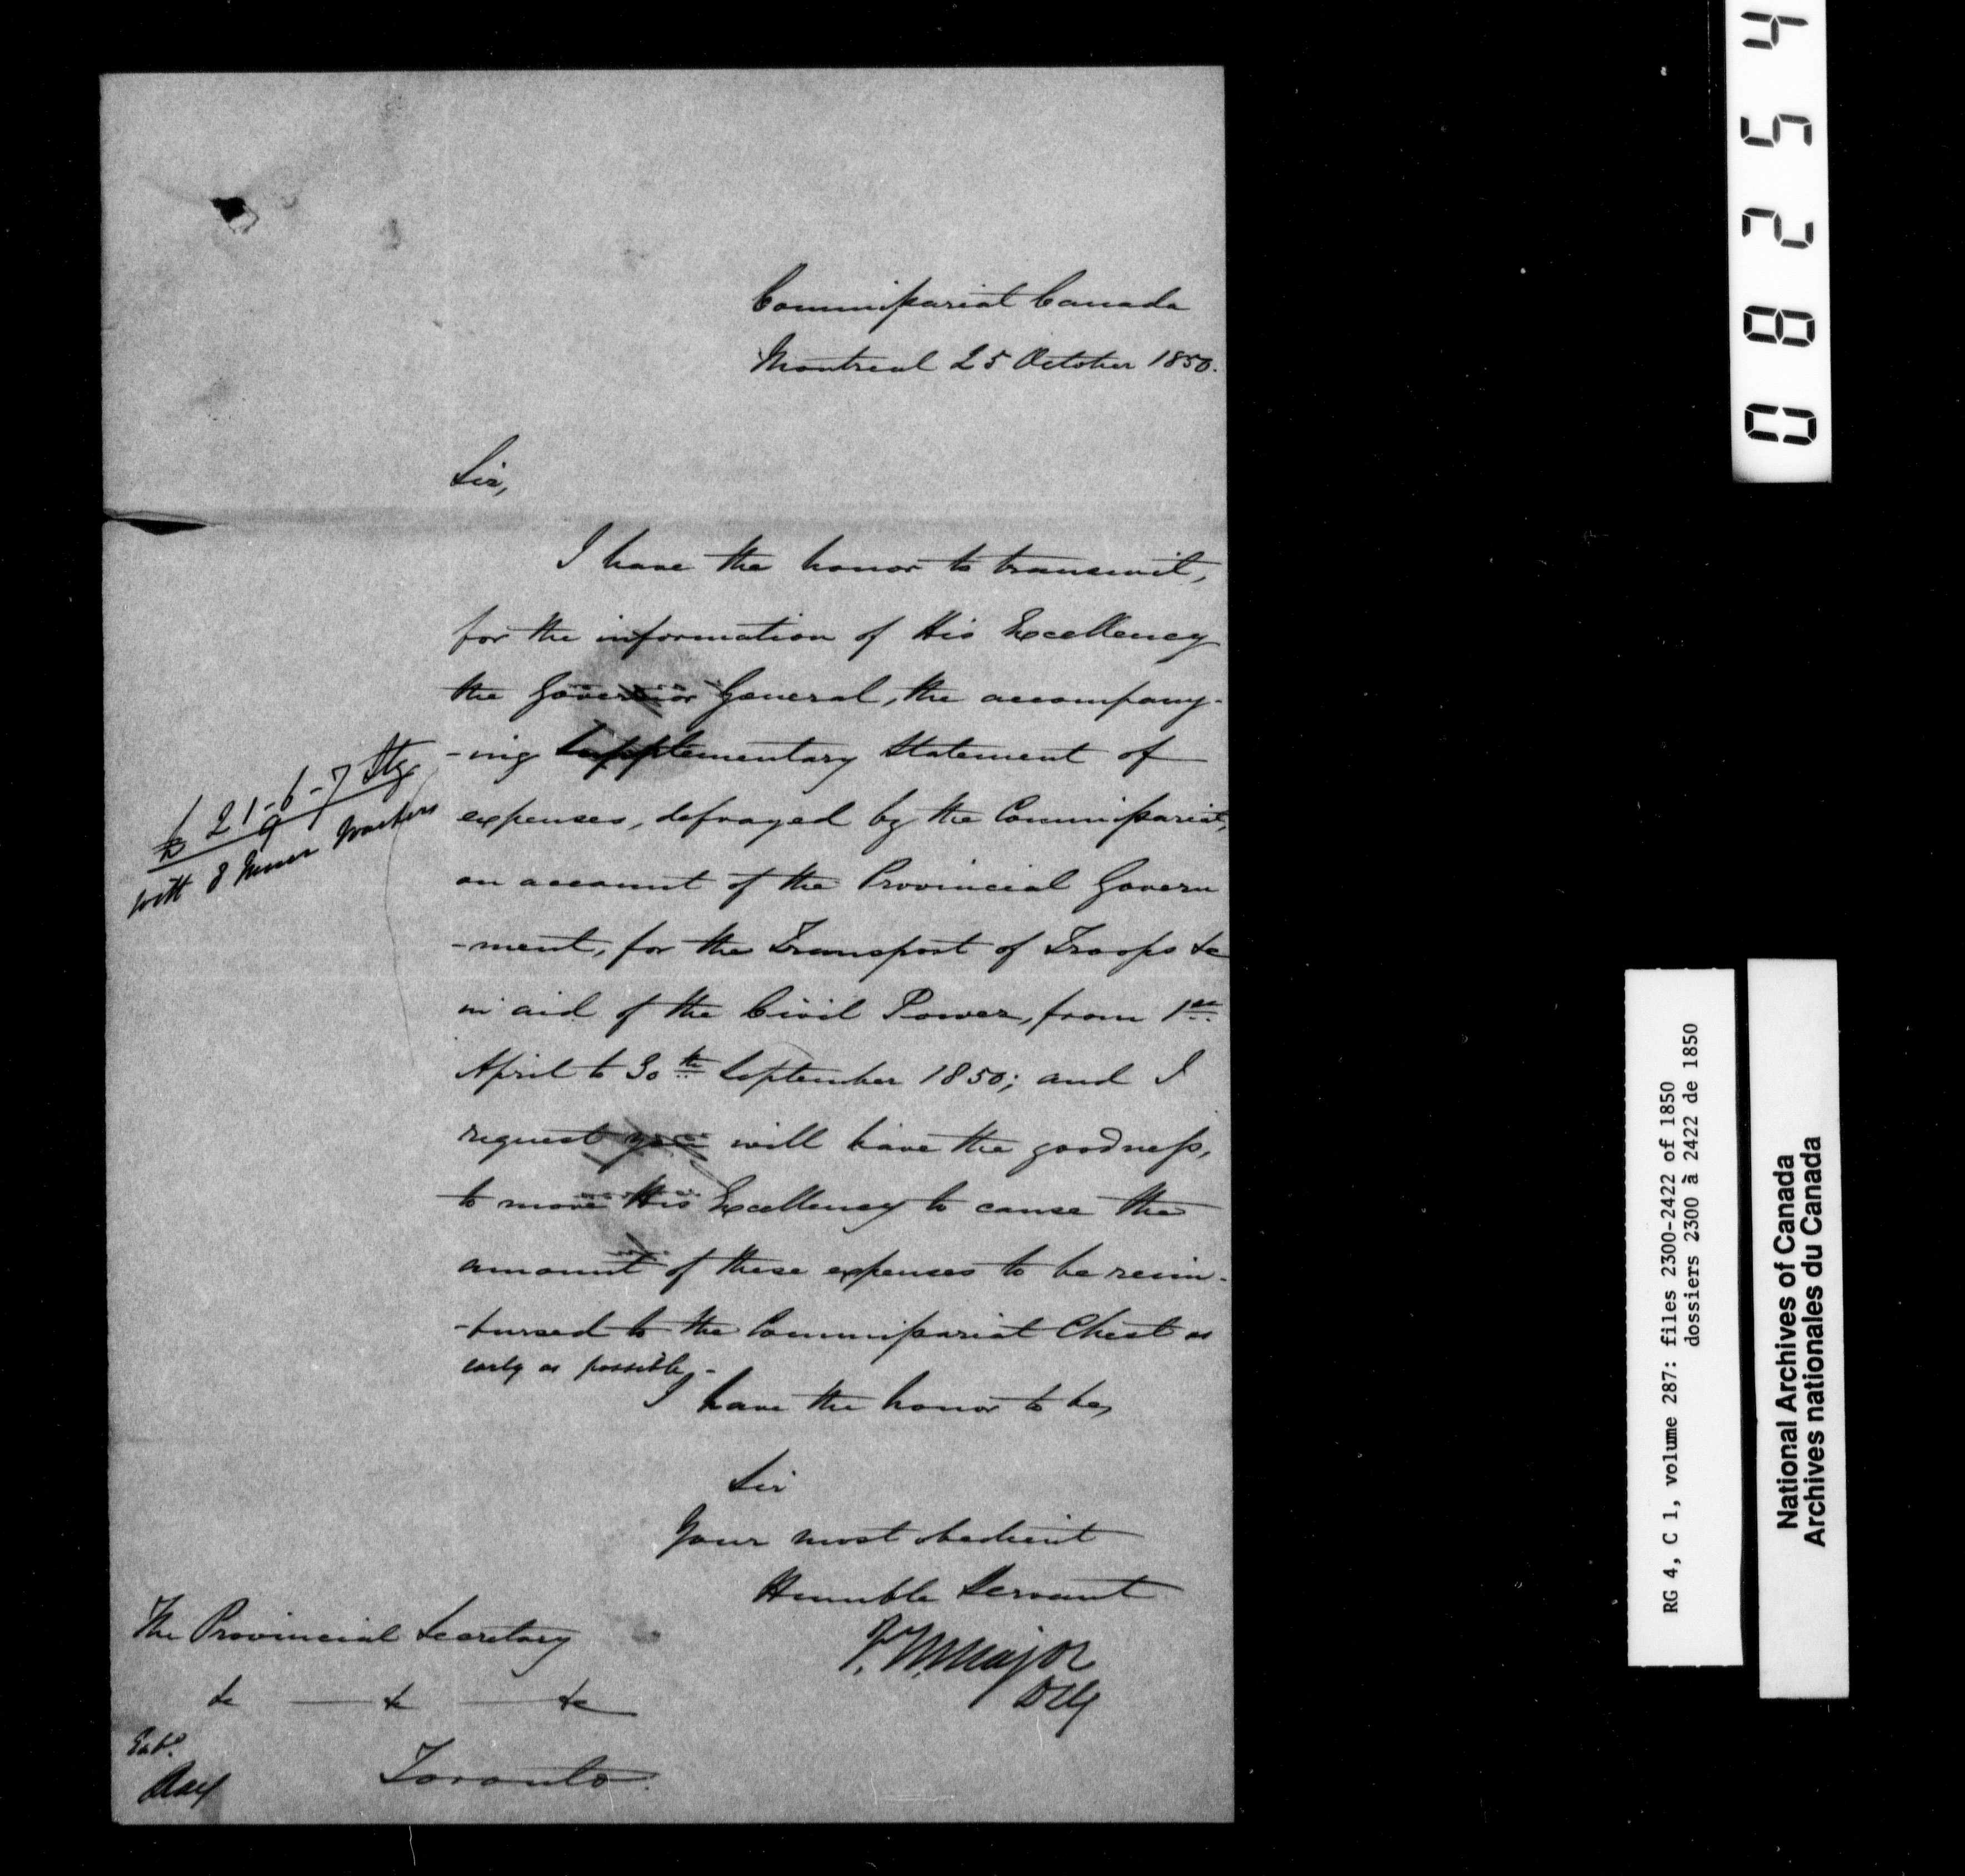 Commissariat Canada
Montreal 25 October 1850.
Sir,
I have the honor to transmit,
for the information of His Excellency
the Governor General, the accompany-
-ing Supplementary Statement of
expenses, defrayed by the Commissariat,
on account of the Provincial Govern
-ment, for the Transport of Troops &c
in aid of the Civil Power, from 1st
April to 30th September 1850; and I
request you will have the goodness,
to move His Excellency to cause the
amount of these expenses to be reim-
-bursed to the Commissariat Chest as
early as possible -
I have the honor to be,
Sir
Your most obedient
Humble Servant
Major
£21-6-7 Stg
with 8
The Provincial Secretary
&c — &c — &c
Toronto.
08254
RG 4, C 1, volume 287: files 2300-2422 of 1850
dossiers 2300 à 2422 de 1850
National Archives of Canada
Archives nationales du Canada